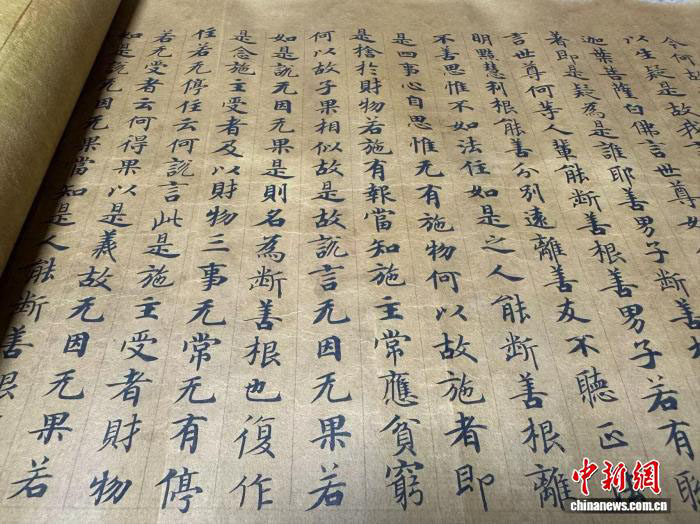 何
以生疑是故我
迦葉菩薩白佛言世尊如
著即是疑為是誰耶善男子斷善
言世尊何等人輩能斷善根善男子若有聡
明黠慧利根能善分別遠離善友不聽正
不善思惟不如法住如是之人能斷善根離
是四事心自思惟无有施物何以故施者即
是捨於財物若施有報當知施主常應貧窮
何以故子果相似故是故說言无因无果若
如是說无因无果是則名為断善根也復作
是念施主受者及以財物三事无常无有停
住若无停住云何說言此是施主受者財物
若无受者云何得果以是義故无因无果若
如是說无因无果當知是人能斷善根
中新网
chinanews.com